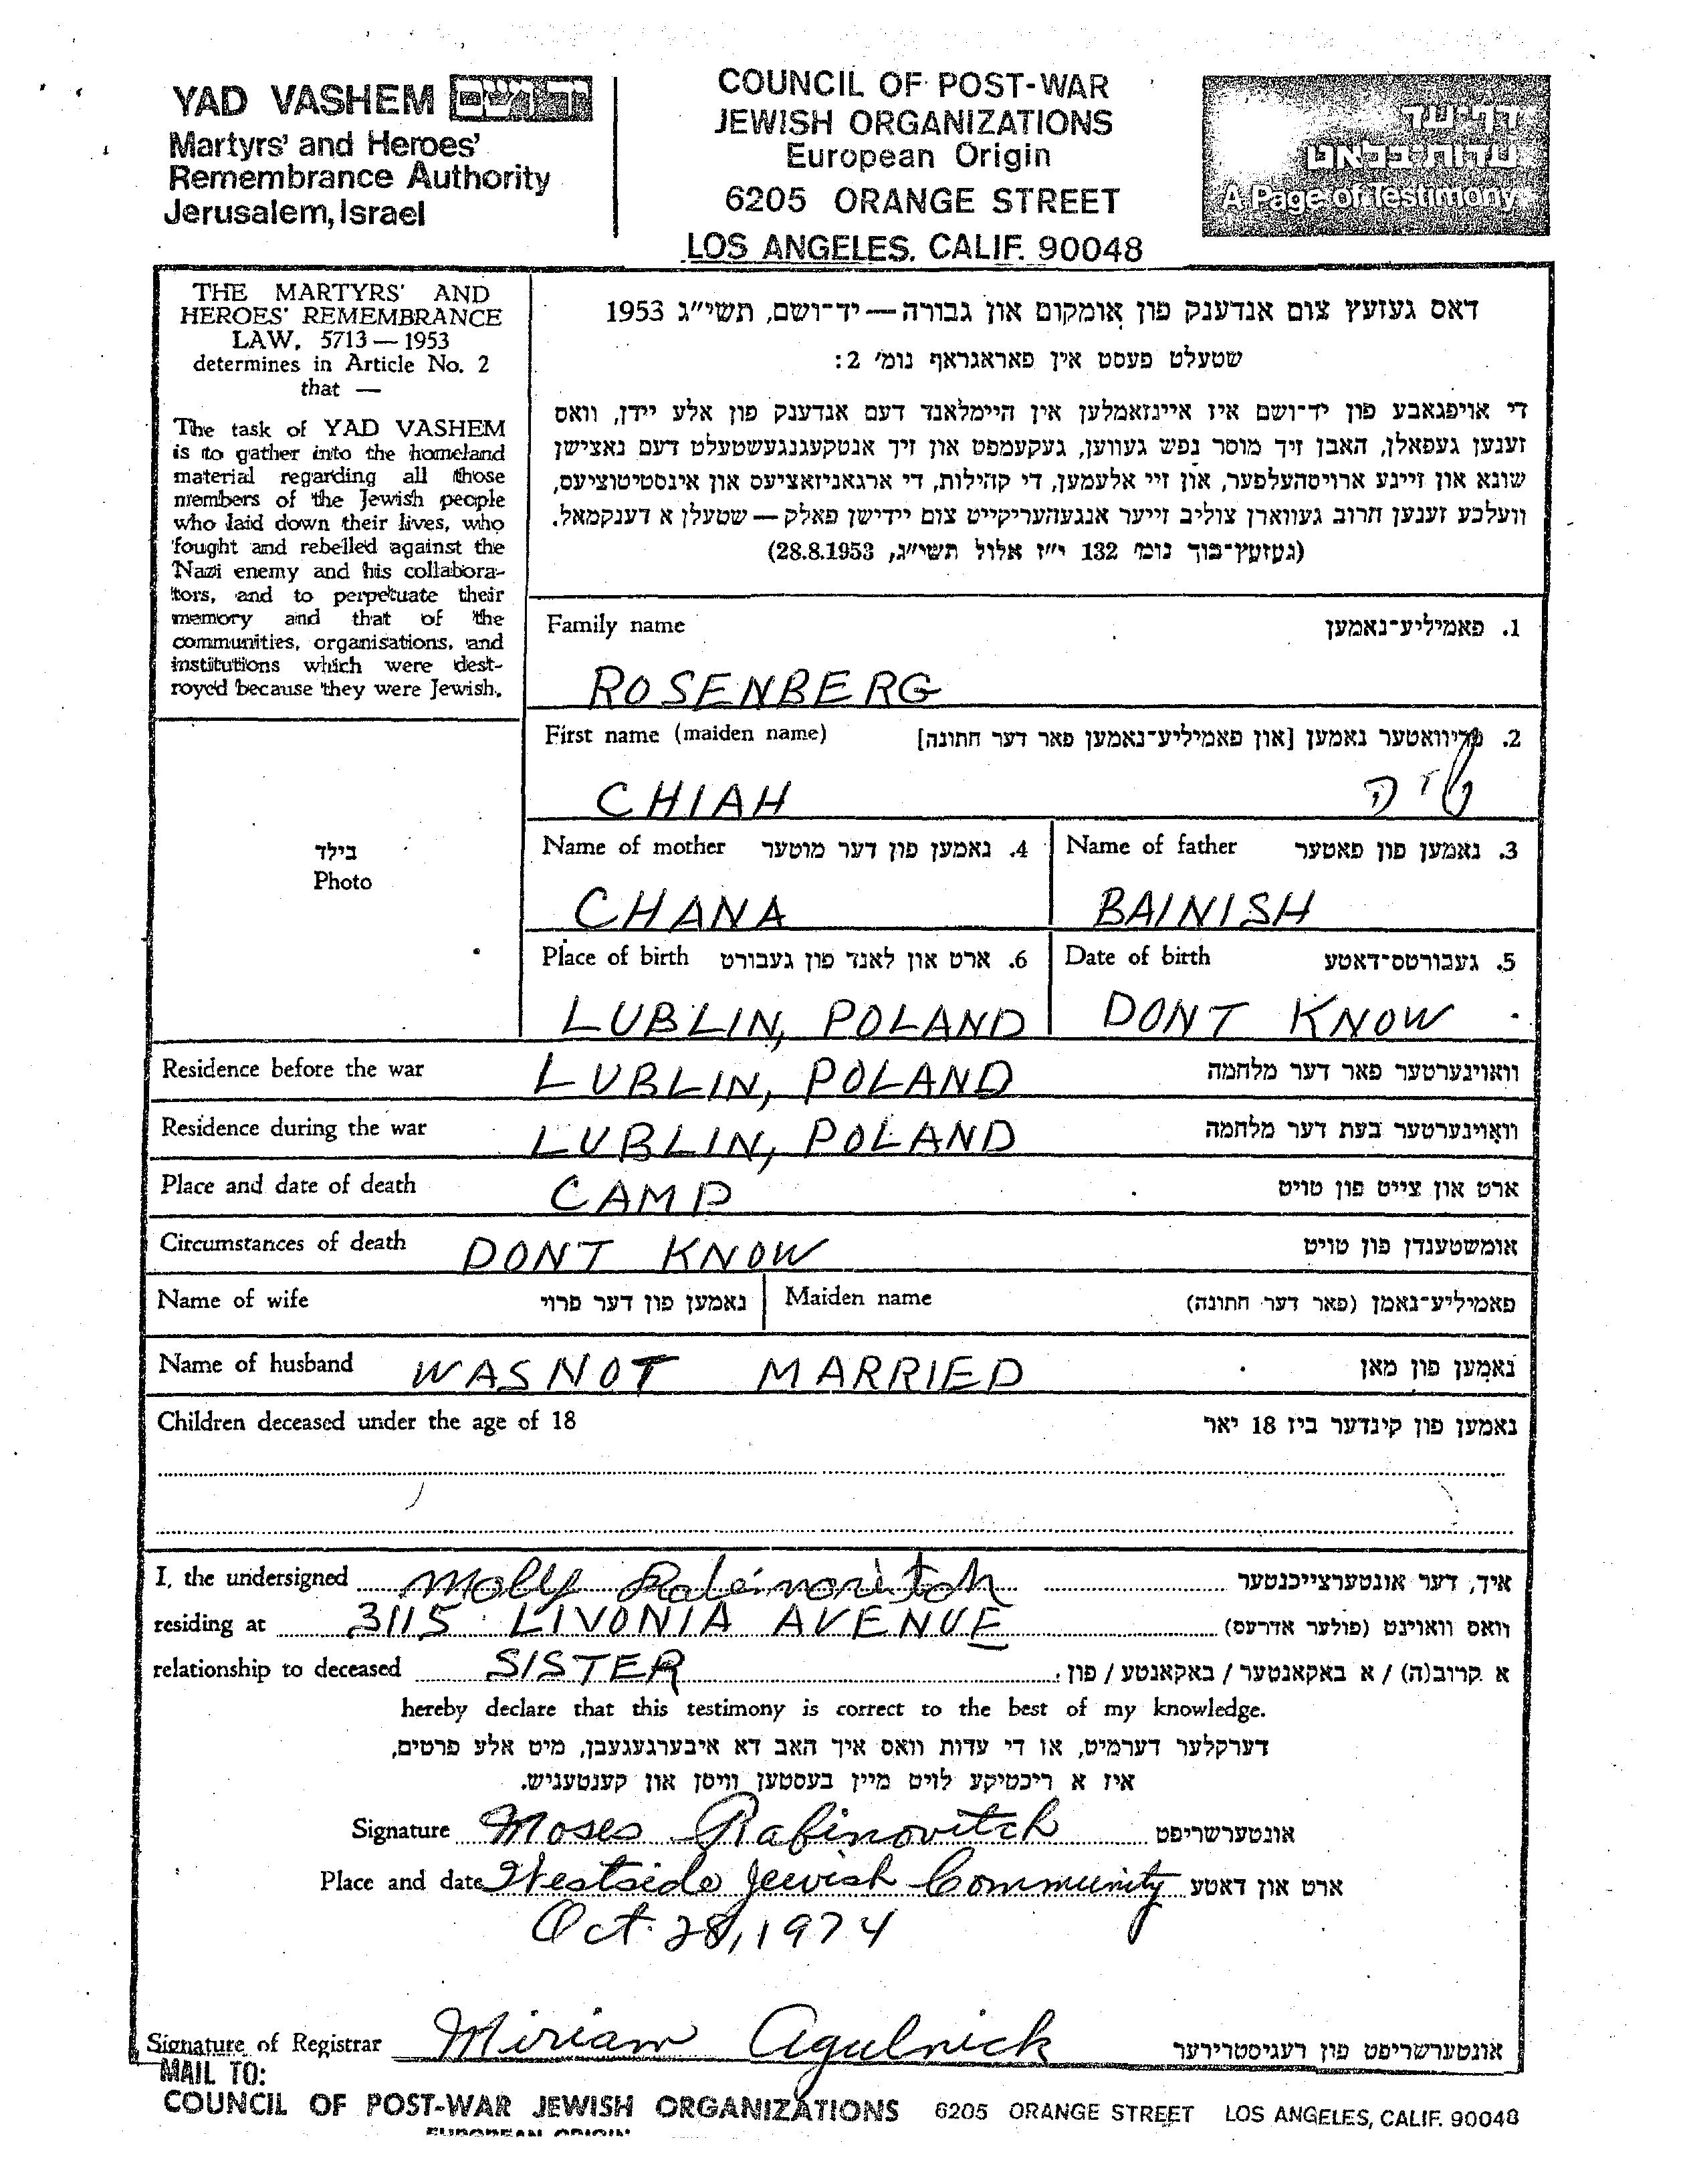 YAD VASHEM יד ושם
Martyrs' and Heroes'
Remembrance Authority
Jerusalem, Israel
COUNCIL OF POST-WAR
JEWISH ORGANIZATIONS
European Origin
6205 ORANGE STREET
LOS ANGELES, CALIF. 90048
דף־עד
עדות בלאט
A Page of Testimony
THE MARTYRS' AND
HEROES' REMEMBRANCE
LAW, 5713 — 1953
determines in Article No. 2
that —
The task of YAD VASHEM
is to gather into the homeland
material regarding all those
members of the Jewish people
who laid down their lives, who
fought and rebelled against the
Nazi enemy and his collabora-
tors, and to perpetuate their
memory and that of the
communities, organisations, and
institutions which were dest-
royed because they were Jewish.
דאס געזעץ צום אנדענק פון אומקום און גבורה — יד־ושם, תשי"ג 1953
שטעלט פעסט אין פאראגראף נומ' 2:
די אויפגאבע פון יד־ושם איז איינזאמלען אין היימלאנד דעם אנדענק פון אלע יידן, וואס
זענען געפאלן, האבן זיך מוסר נפש געווען, געקעמפט און זיך אנטקעגנגעשטעלט דעם נאצישן
שונא און זיינע ארויסהעלפער, און זיי אלעמען, די קהילות, די ארגאניזאציעס און אינסטיטוציעס,
וועלכע זענען חרוב געווארן צוליב זייער אנגעהעריקייט צום יידישן פאלק — שטעלן א דענקמאל.
(געזעץ־בוך נומ' 132 י"ז אלול תשי"ג, 28.8.1953)
Family name 1. פאמיליע־נאמען
ROSENBERG
First name (maiden name) 2. פריוואטער נאמען [און פאמיליע־נאמען פאר דער חתונה]
CHIAH
Name of mother 4. נאמען פון דער מוטער Name of father 3. נאמען פון פאטער
CHANA BAINISH
Place of birth 6. ארט און לאנד פון געבורט Date of birth 5. געבורטס־דאטע
LUBLIN, POLAND DONT KNOW
בילד
Photo
Residence before the war LUBLIN, POLAND וואוינערטער פאר דער מלחמה
Residence during the war LUBLIN, POLAND וואוינערטער בעת דער מלחמה
Place and date of death CAMP ארט און צייט פון טויט
Circumstances of death DONT KNOW אומשטענדן פון טויט
Name of wife נאמען פון דער פרוי Maiden name פאמיליע־נאמן (פאר דער חתונה)
Name of husband WAS NOT MARRIED נאמען פון מאן
Children deceased under the age of 18 נאמען פון קינדער ביז 18 יאר
I, the undersigned Molly Rabinovitch איך, דער אונטערצייכנטער
residing at 3115 LIVONIA AVENUE וואס וואוינט (פולער אדרעס)
relationship to deceased SISTER א קרוב(ה) / א באקאנטער / באקאנטע / פון:
hereby declare that this testimony is correct to the best of my knowledge.
דערקלער דערמיט, אז די עדות וואס איך האב דא איבערגעגעבן, מיט אלע פרטים,
איז א ריכטיקע לויט מיין בעסטען וויסן און קענטעניש.
Signature Moses Rabinovitch אונטערשריפט
Place and date Westside Jewish Community ארט און דאטע
Oct. 28, 1974
Signature of Registrar Miriam Agulnick אונטערשריפט פון רעגיסטרירער
MAIL TO:
COUNCIL OF POST-WAR JEWISH ORGANIZATIONS 6205 ORANGE STREET LOS ANGELES, CALIF. 90048
EUROPEAN ORIGIN